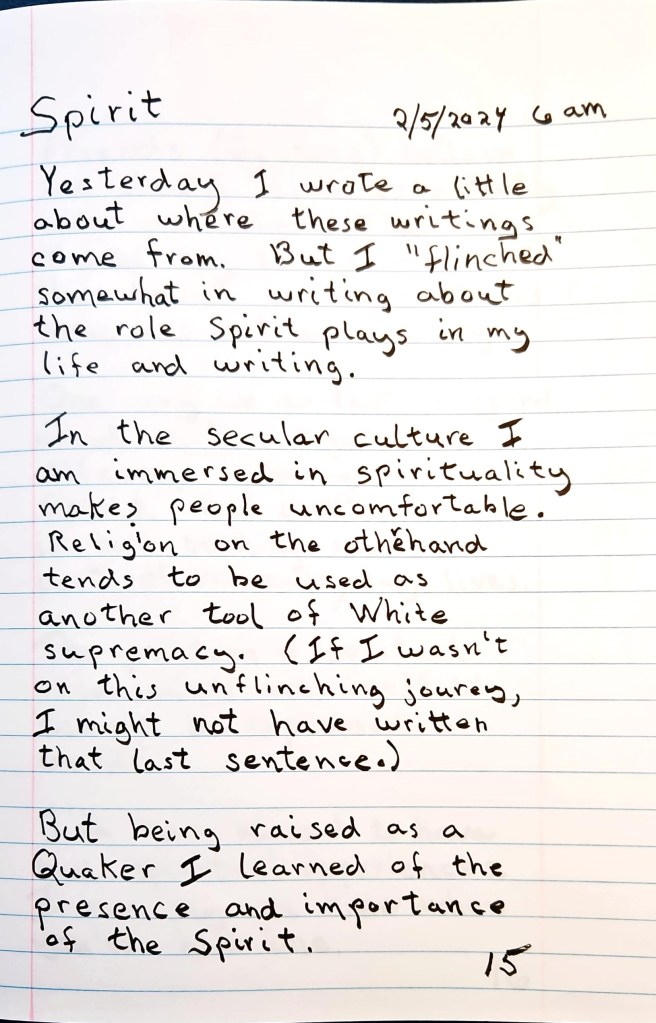 Spirit 2/5/2024 6 am
Yesterday I wrote a little
about where these writings
come from. But I "flinched"
somewhat in writing about
the role Spirit plays in my
life and writing.
In the secular culture I
am immersed in spirituality
makes people uncomfortable.
Religion on the otherhand
tends to be used as
another tool of White
supremacy. (If I wasn't
on this unflinching jourey,
I might not have written
that last sentence.)
But being raised as a
Quaker I learned of the
presence and importance
of the Spirit.
15